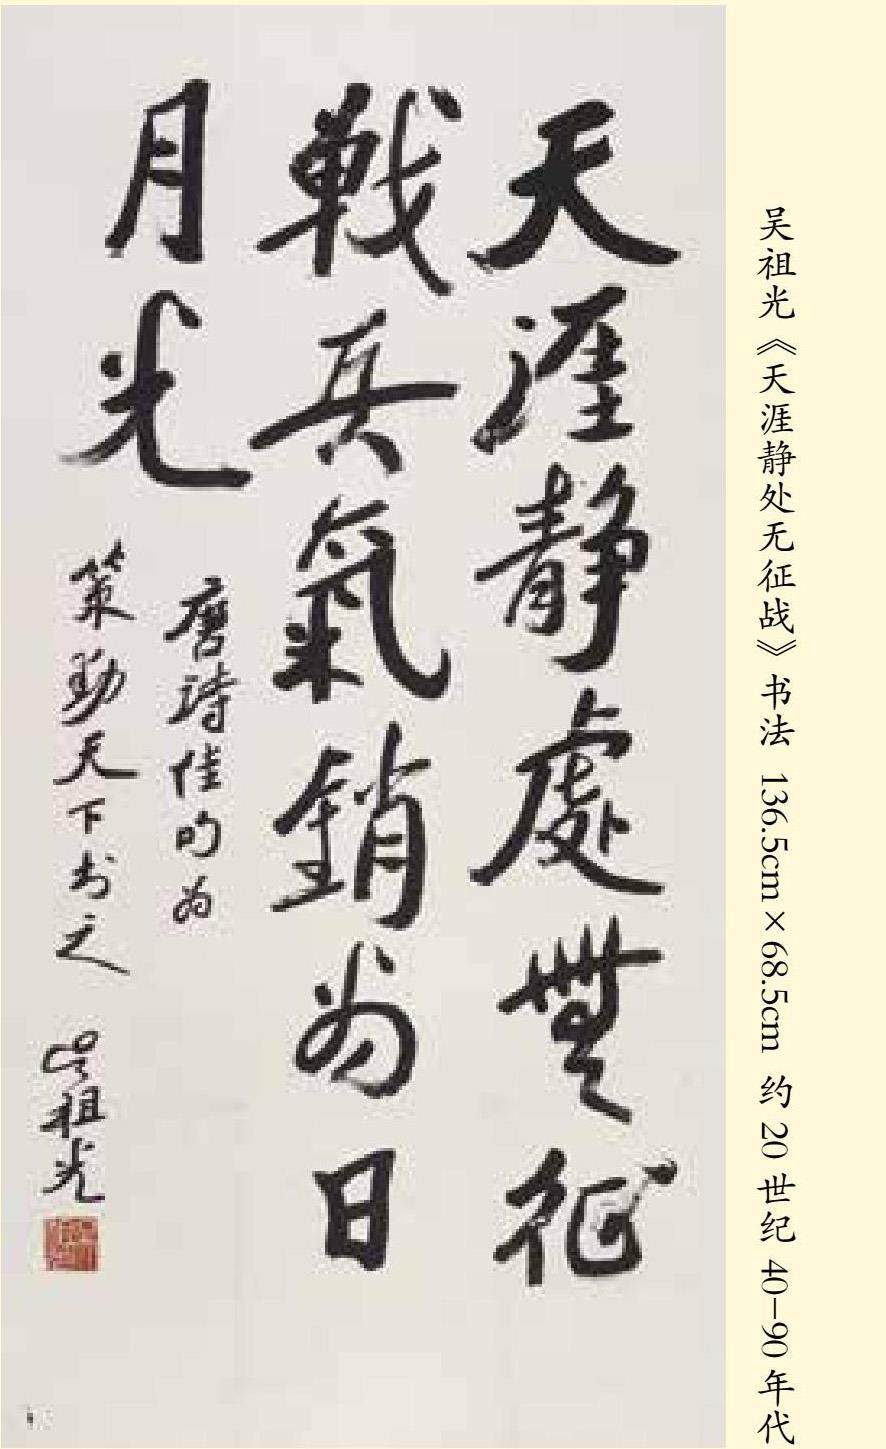 吴祖光《天涯静处无征战》书法 136.5cm×68.5cm 约20世纪40-90年代
天涯静處無征
戰兵氣銷为日
月光
唐詩佳句为
策勤天下书之
吴祖光